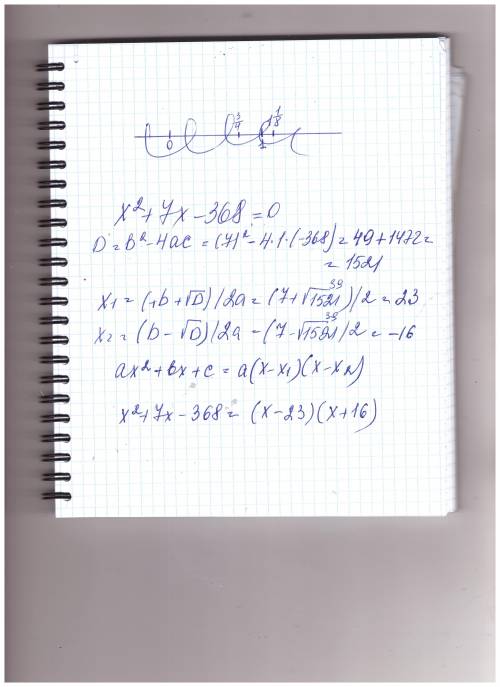 0 3/4 1 1/8
x²+7x-368=0
D=b²-4ac=(7)²-4·1·(-368)=49+1472=
=1521
x₁=(+b+√D)/2a=(7+√1521)/2=23
39
x₂=(b-√D)/2a=(7-√1521)/2=-16
39
ax²+bx+c=a(x-x₁)(x-x₂)
x²+7x-368=(x-23)(x+16)